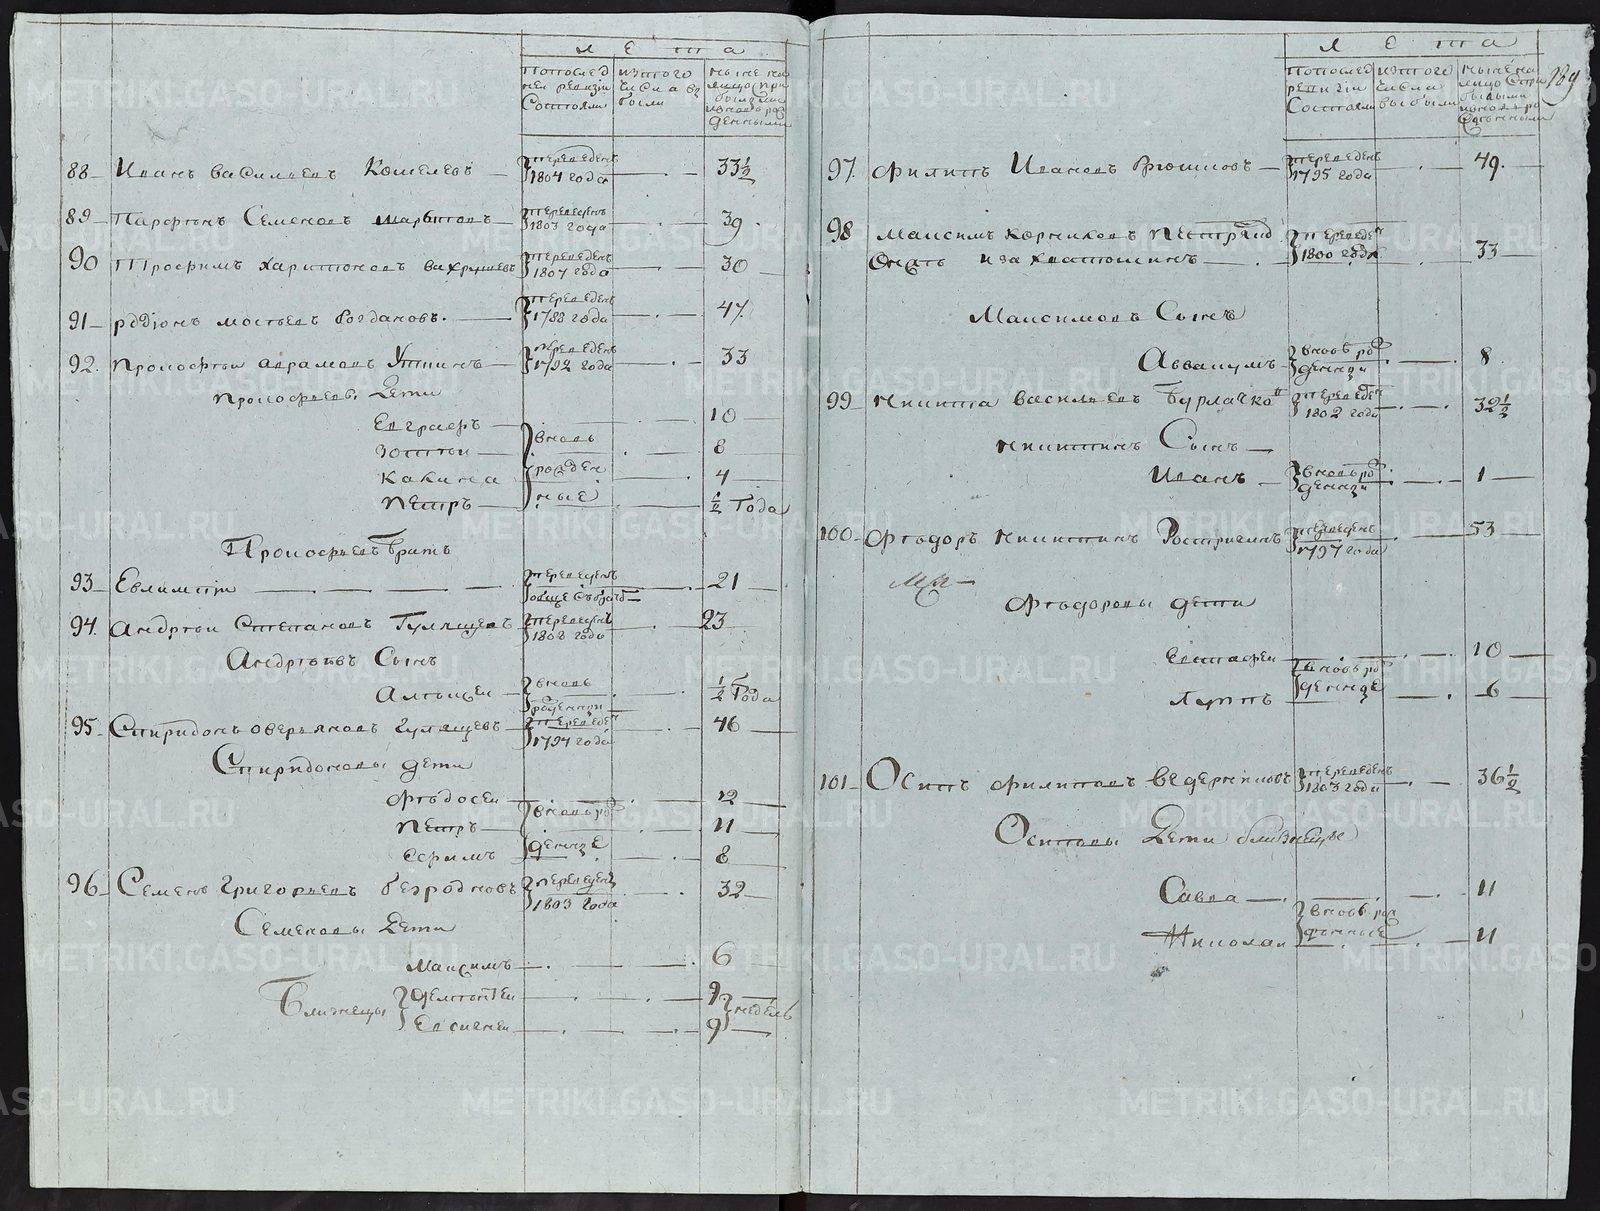 лета
По послед
ней ревизи
Состояли
из того
числа вы
были
ныне на
лицо с при
былыми
и вновь рож
денными
88 Иванъ Васильевъ Кошелевъ переведенъ 1804 года 33½
89 Парфенъ Семеновъ переведенъ 1803 года 39
90 Трофимъ Харитоновъ Вахрушевъ переведенъ 1807 года 30
91 Родионъ Богдановъ переведенъ 1788 года 47
92 Прокофеи Аврамовъ Утинъ переведенъ 1792 года 33
Прокофьевы Дети
Евграфъ 10
Зотеи вновь 8
рожден 4
Петръ ные ½ года
Прокофьевъ Братъ
93 Евлампии переведенъ 21
94 Андреи Степановъ Гулящевъ переведенъ 1802 года 23
Андреевъ Сынъ
Алексеи вновь рожденны ½ года
95 Спиридонъ Оверьяновъ Гулящевъ переведен 1797 года 46
Спиридоновы дети
Федосеи 12
Петръ вновь ро 11
Ефимъ денные 8
96 Семенъ Григорьевъ Безродновъ переведенъ 1803 года 32
Семеновы Дети
Максимъ 6
Близнецы Дементеи 9 недель
Евсигнеи 9
лета
По послед
ревизии
Состояли
из того
числа
выбыли
ныне на
лицо с при
былыми
и вновь ро
жденными
189
97 Филипъ Ивановъ Вртошновъ переведенъ 1795 года 49
98 Максимъ Корниловъ переведен 1800 года 33
Максимовъ Сынъ
Аввакумъ вновь ро денны 8
99 Никита Васильевъ Бурлачко переведен 1802 года 32½
Никитинъ Сынъ
Иванъ вновь ро денны 1
100 Федоръ Никитинъ Ростригинъ переведенъ 1797 года 53
Федоровы дети
Евстафеи вновь ро 10
Лупъ денные 6
101 Осипъ Филиповъ Ведерниковъ переведенъ 1803 года 36½
Осиповы Дети близнецы
Савва 11
вновь рож
Николаи денные 11
METRIKI.GASO-URAL.RU